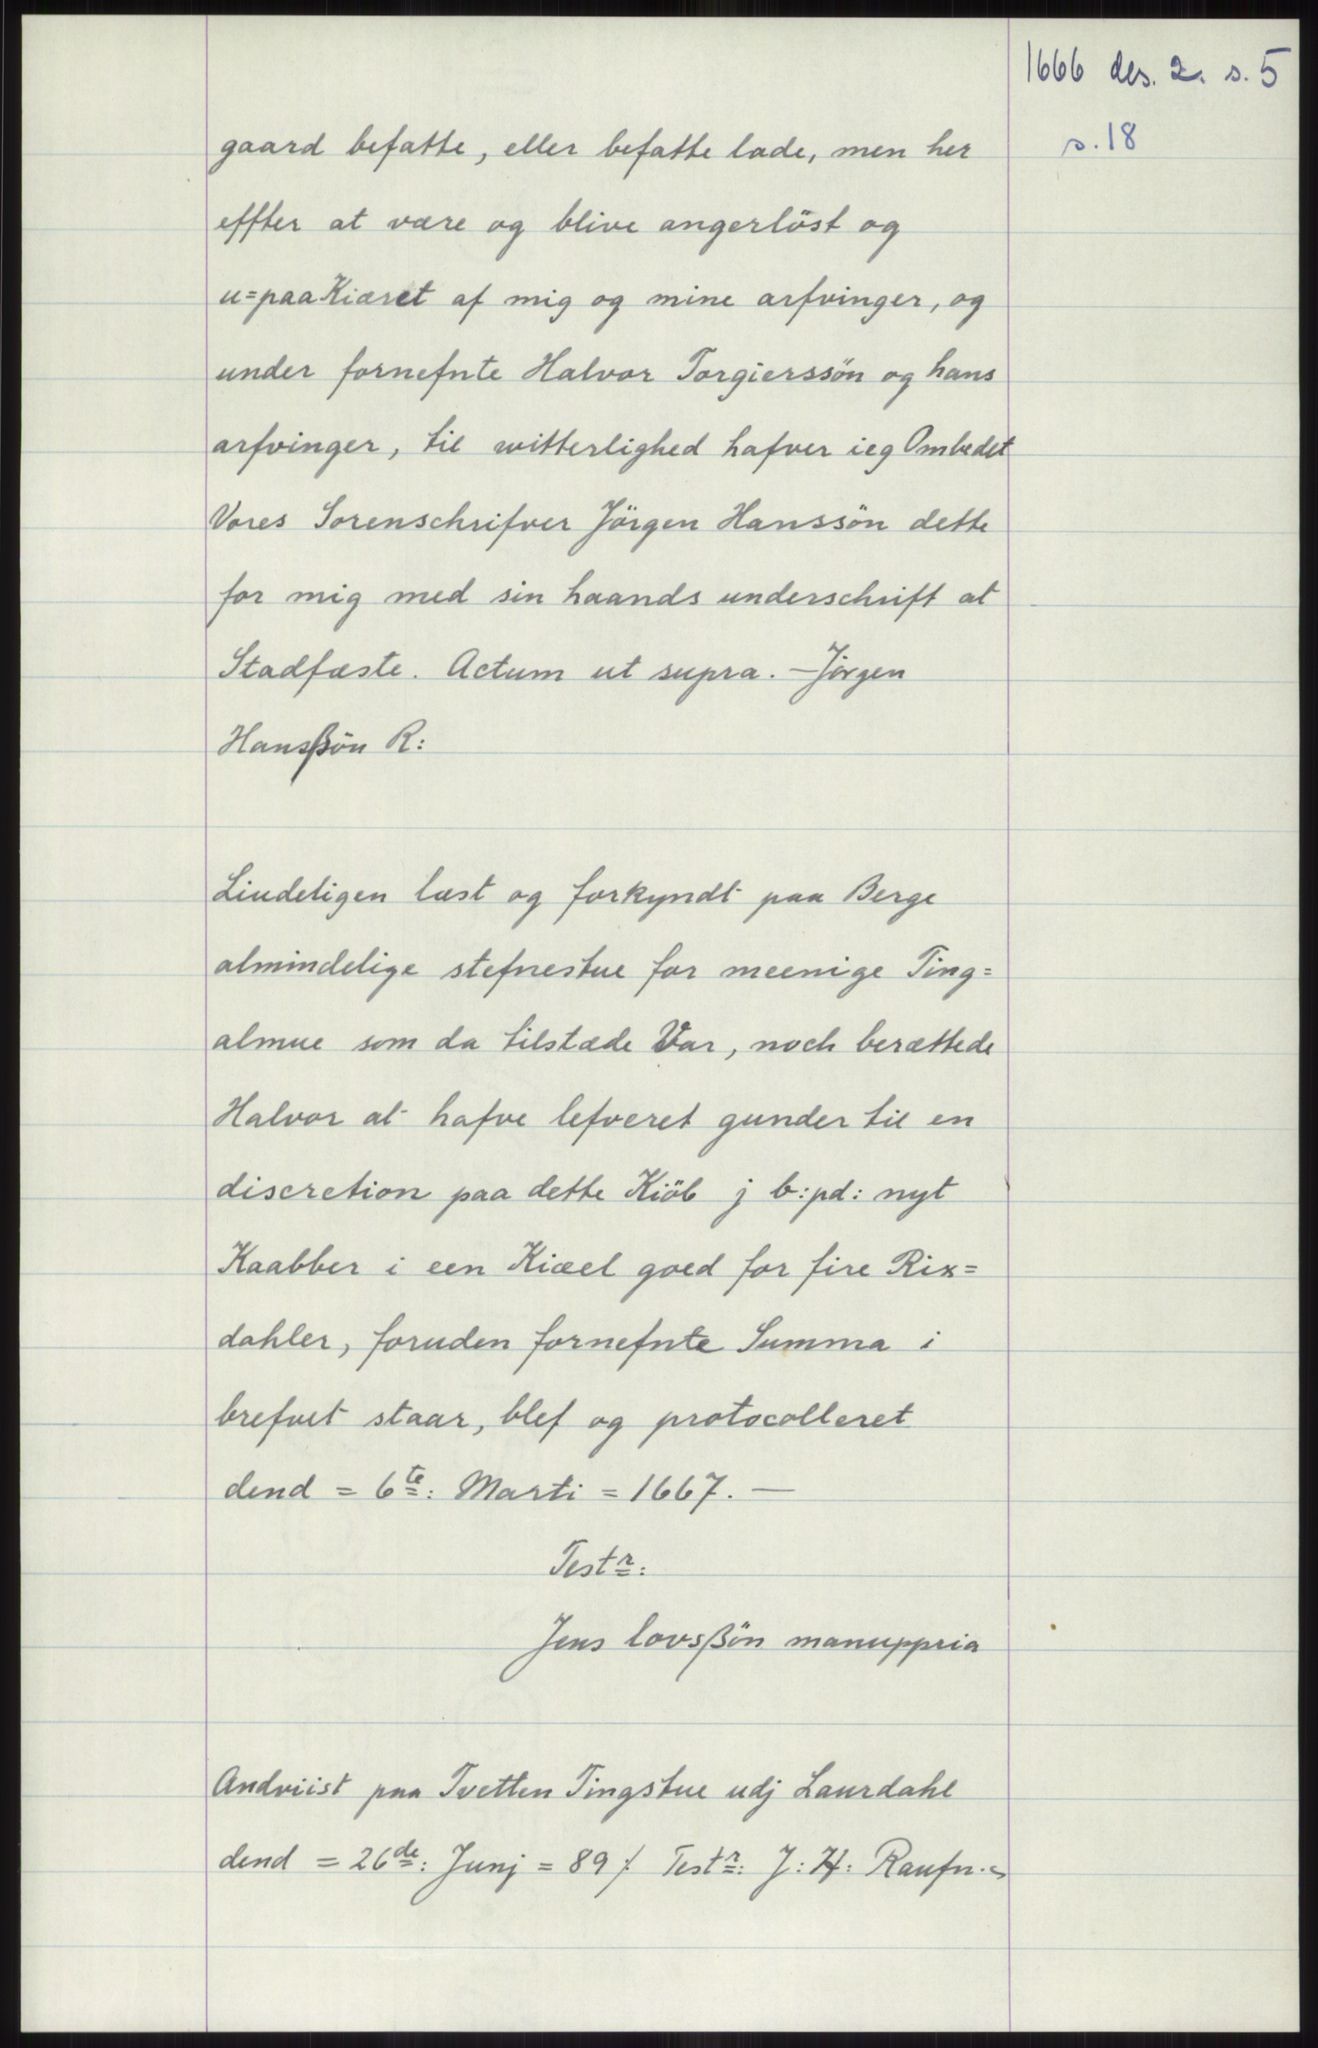 1666 des. 2. s. 5
s. 18
gaard befatte, eller befatte lade, men her
effter at være og blive angerlöst og
u=paaKiæret af mig og mine arfvinger, og
under fornefnte Halvor Torgierssön og hans
arfvinger, til witterlighed hafver ieg Ombedet
Vores Sorenschrifver Jörgen Hanssön dette
for mig med sin haands underschrift at
Stadfæste. Actum ut supra. — Jörgen
Hansßön R:
Liudeligen læst og forkyndt paa Berge
almindelige stefnestue for meenige Ting=
almue som da tilstæde Var, noch berættede
Halvor at hafve lefveret gunder til en
discretion paa dette Kiöb j b:pd: nyt
Kaabber i een Kiæel goed for fire Rix=
dahler, foruden fornefnte Summa i
brefvet staar, blef og protocolleret
dend = 6te: Marti = 1667. —
Testr:
Jens lovsßön manuppria
Andviist paa Tvetten Tingstue udj Laurdahl
dend = 26de: Junj = 89 ⁒ Testr: J: H: Raufn.